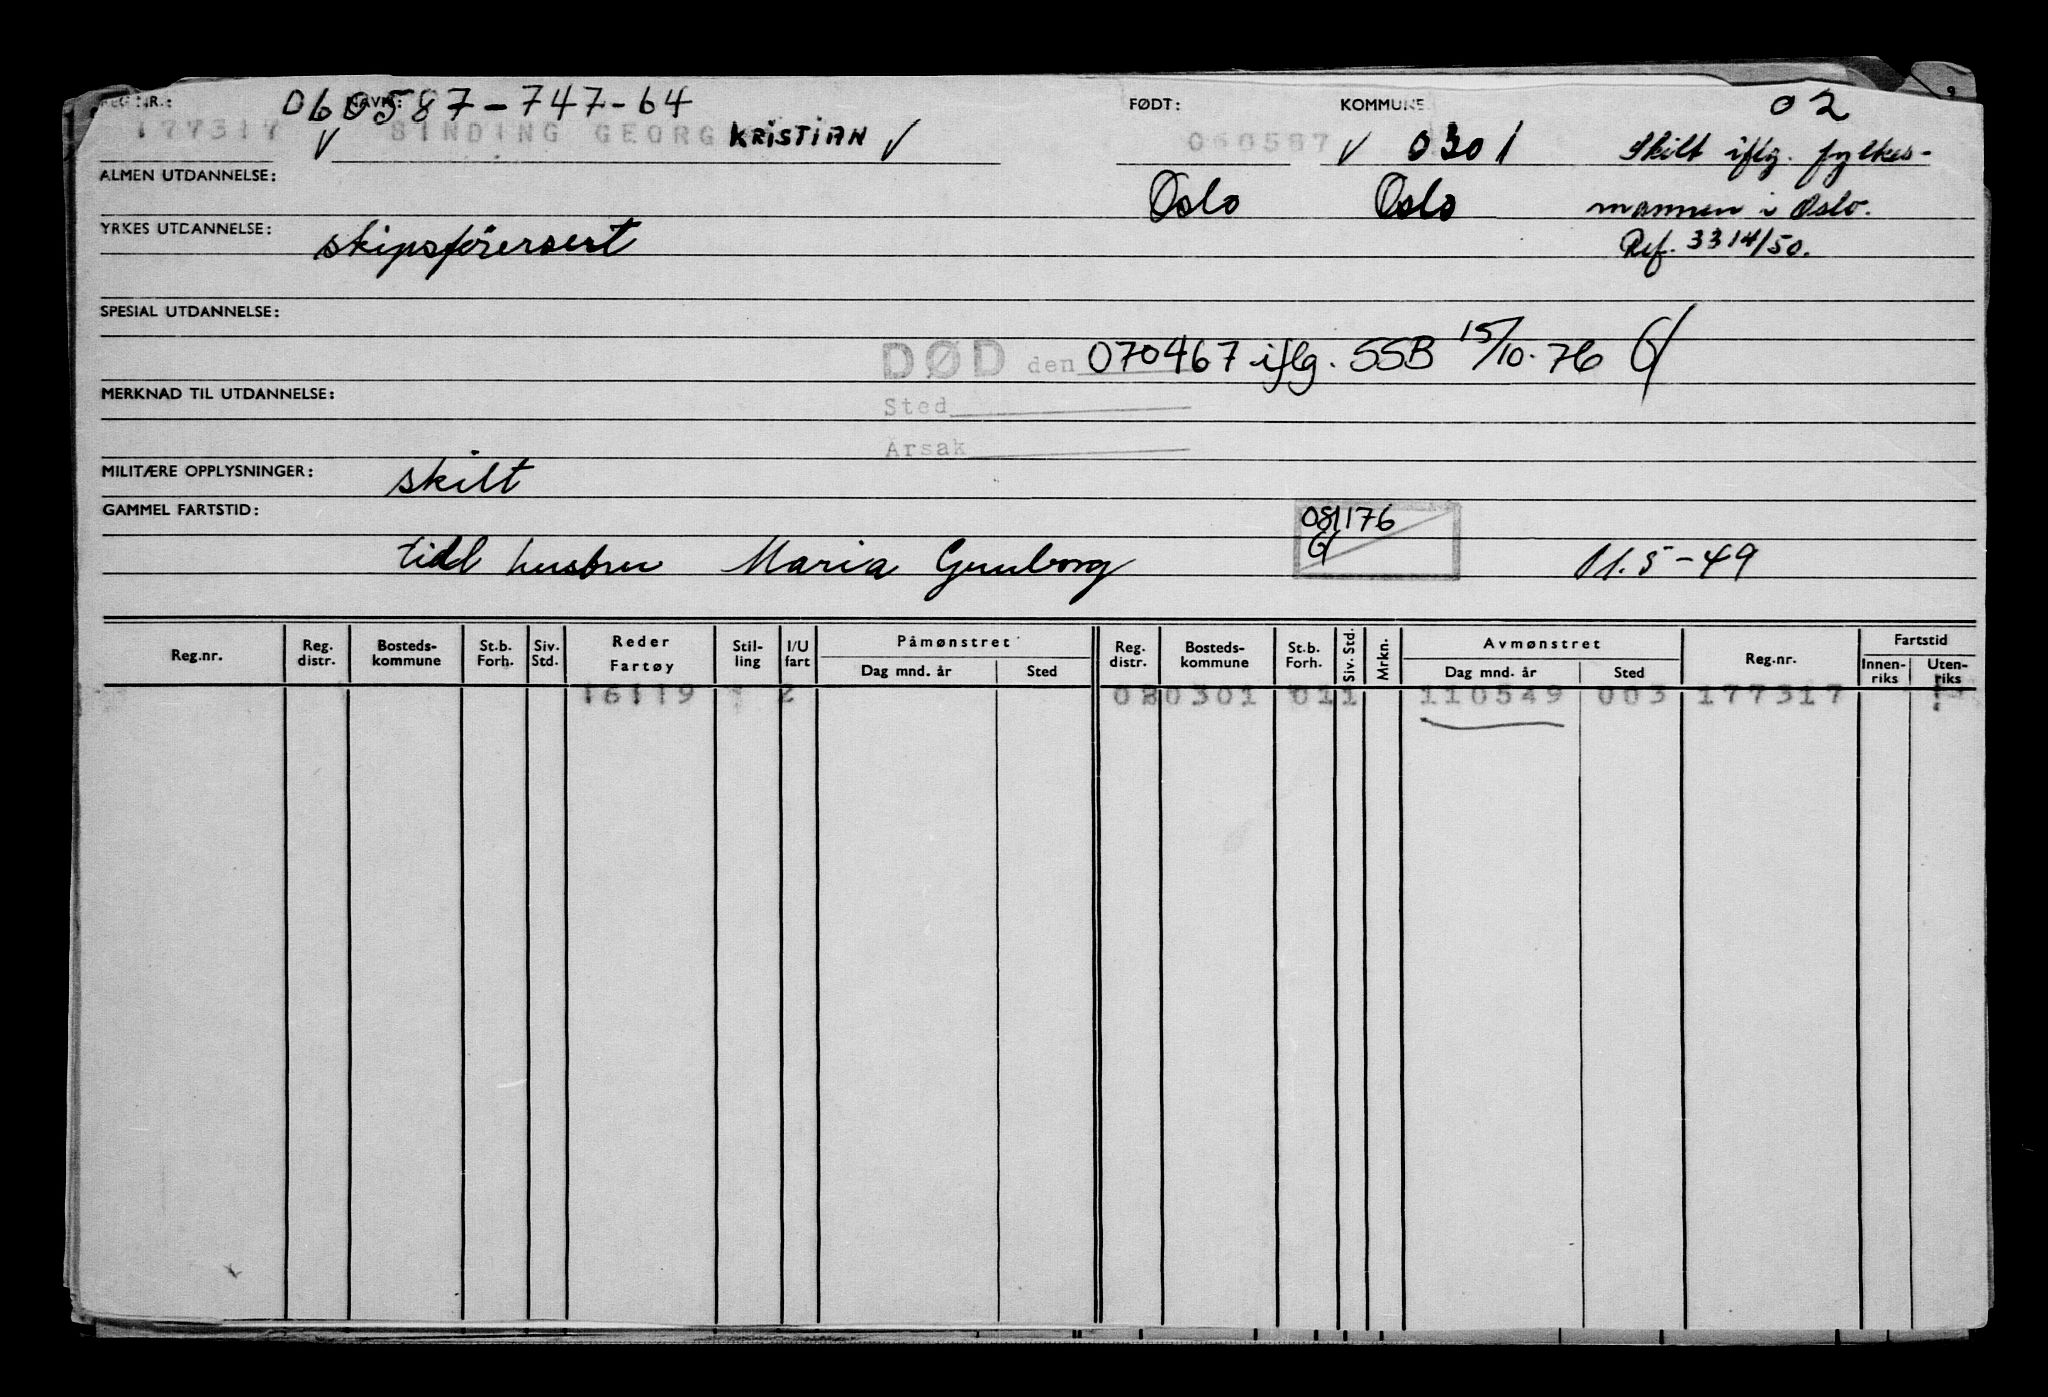 REG. NR.: NAVN: 060587-747-64 FØDT: KOMMUNE 02
177317 SINDING GEORG KRISTIAN 060587 0301 Skilt iflg. fylkes-
ALMEN UTDANNELSE: Oslo Oslo mannen i Oslo.
YRKES UTDANNELSE: skipsførersert Ref. 3314/50.
SPESIAL UTDANNELSE:
DØD den 070467 iflg. SSB 15/10-76
MERKNAD TIL UTDANNELSE: Sted
Årsak
MILITÆRE OPPLYSNINGER: skilt
GAMMEL FARTSTID: 081176
tidl hustru Maria Gunborg 11.5-49
Reg.nr. Reg. distr. Bosteds-kommune St.b. Forh. Siv. Std. Reder Fartøy Stil-ling I/U fart Påmønstret Dag mnd. år Sted Reg. distr. Bosteds-kommune St.b. Forh. Siv. Std. Mrkn. Avmønstret Dag mnd. år Sted Reg.nr. Fartstid Innen-riks Uten-riks
16119 2 020301 011 110549 003 177317